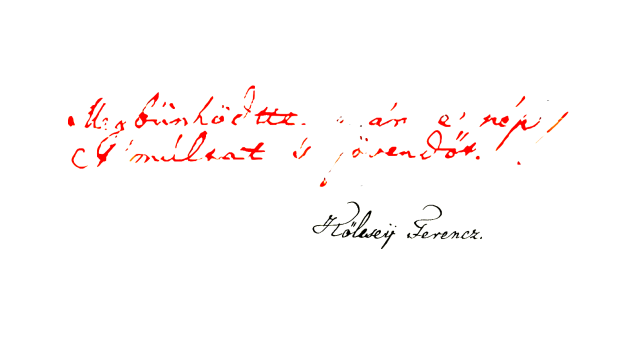 Megbünhödtte már e' nép
A' múltat 's jövendőt.
Kölcsey Ferencz.